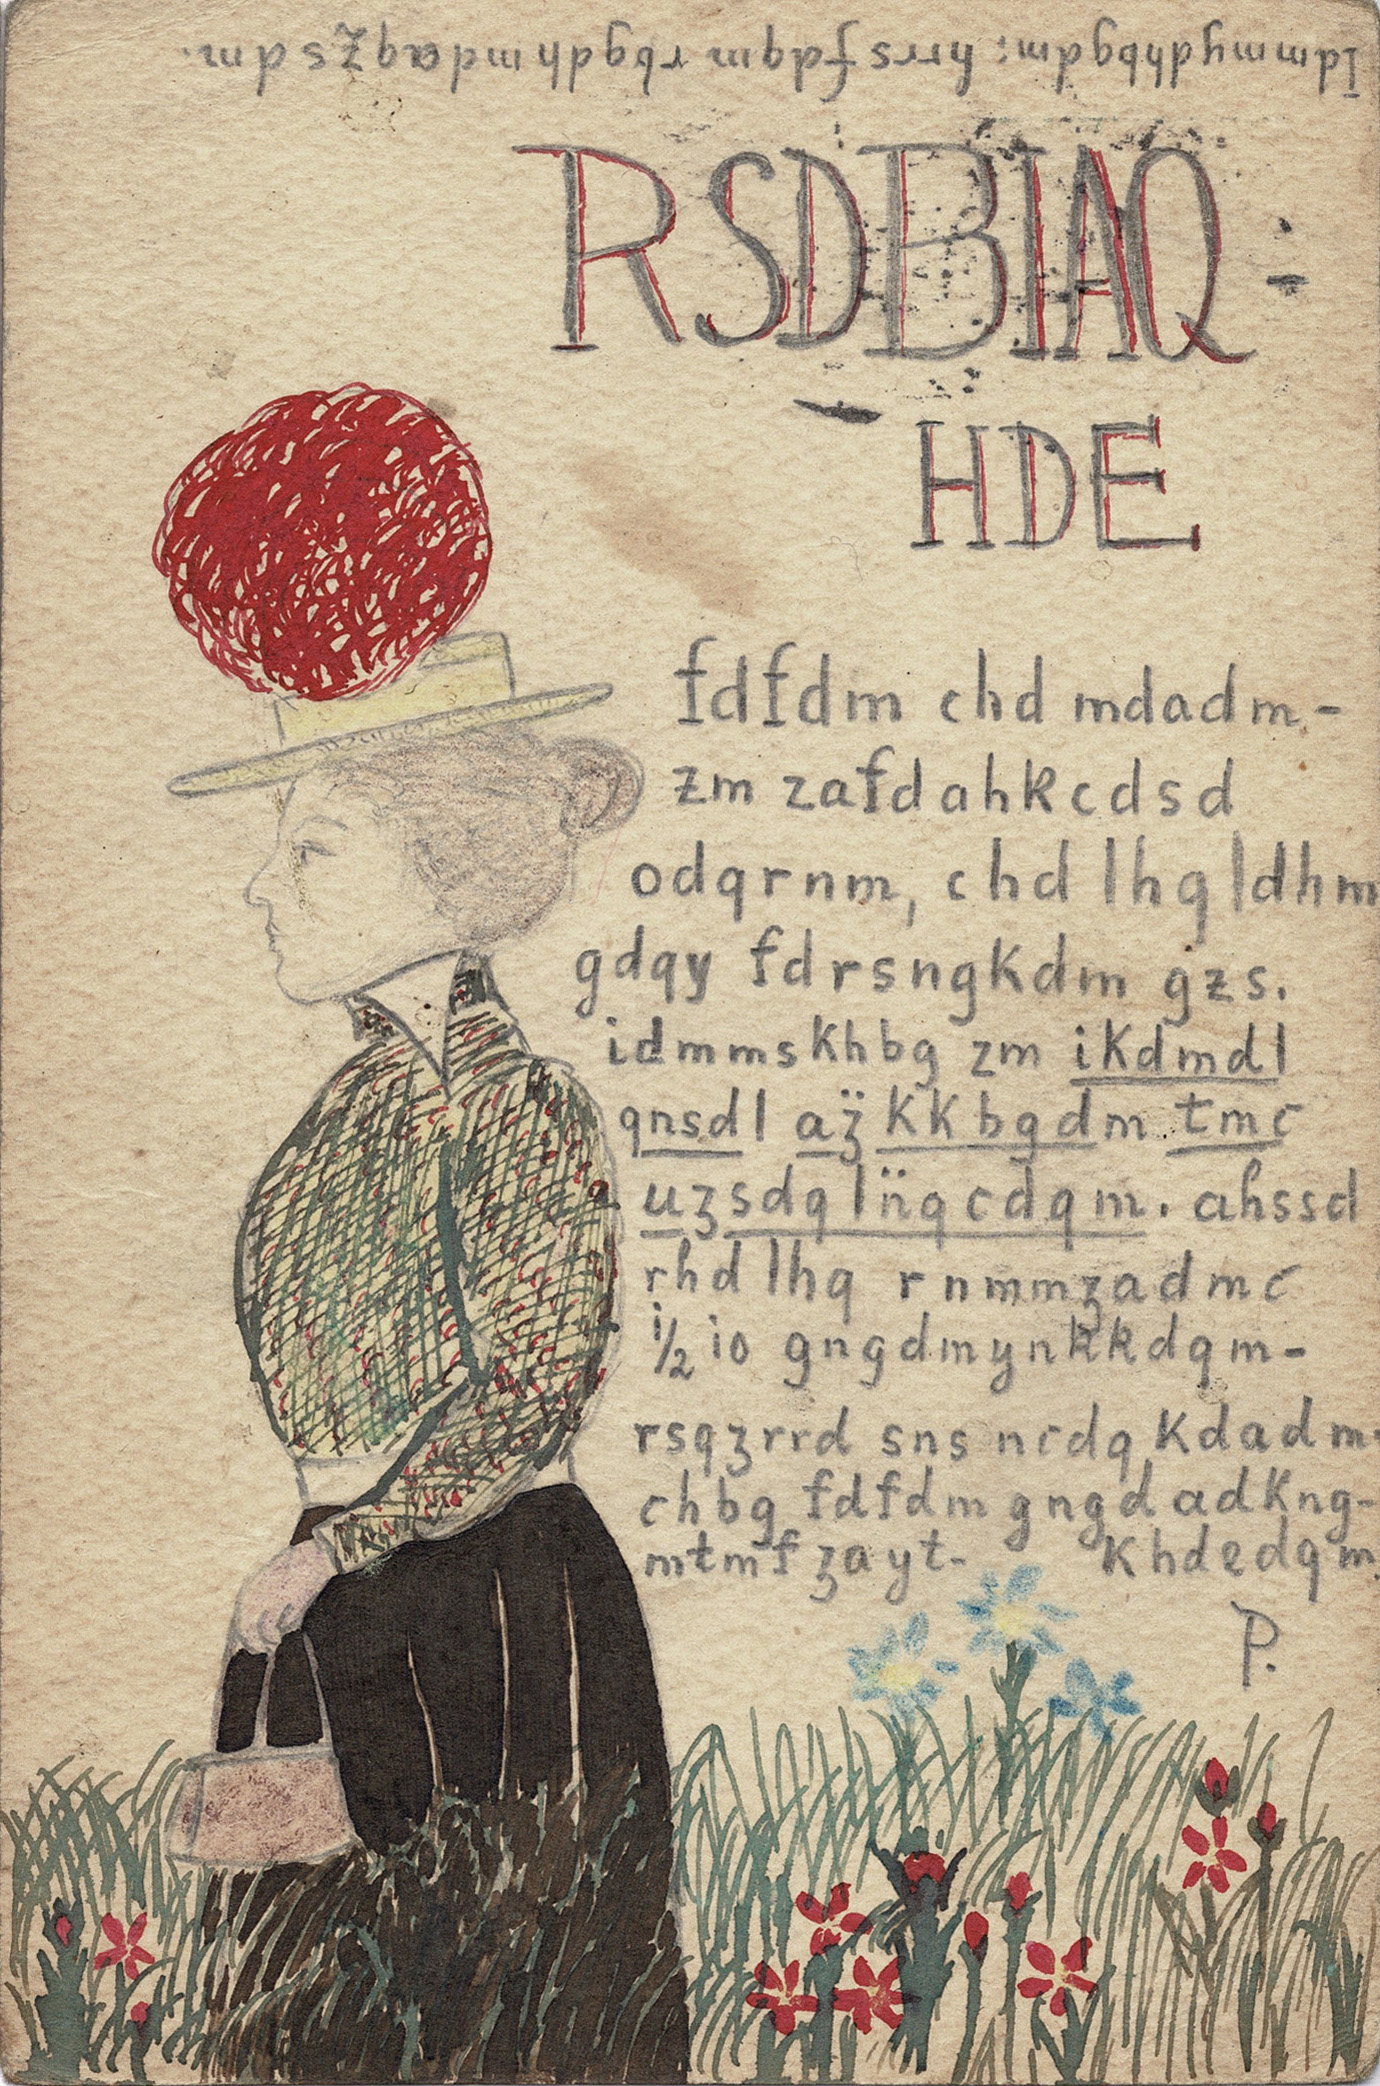 idmmydhbgdm: hrrs fdqm rbgdhmdaqzsdm.
RSDBIAQ-
HDE
fdfdm chd mdadm-
zm zafdahkcdsd
odqrnm, chd lhq ldhm
gdqy fdrsngkdm gzs.
idmmskhbg zm ikdmdl
qnsdl az̈kkbgdm tmc
uzsdqln̈qcdqm. ahssd
rhd lhq rnmmzadmc
½ io gngdmynkkdqm-
rsqzrrd sns ncdq kdadm-
chbg fdfdm gngd adkng-
mtmf zayt- khdedqm.
P.